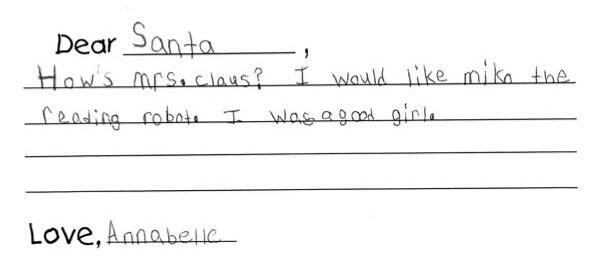 Dear Santa,
How's mrs. claus? I would like miko the
reading robot. I was a good girl.
Love, Annabelle